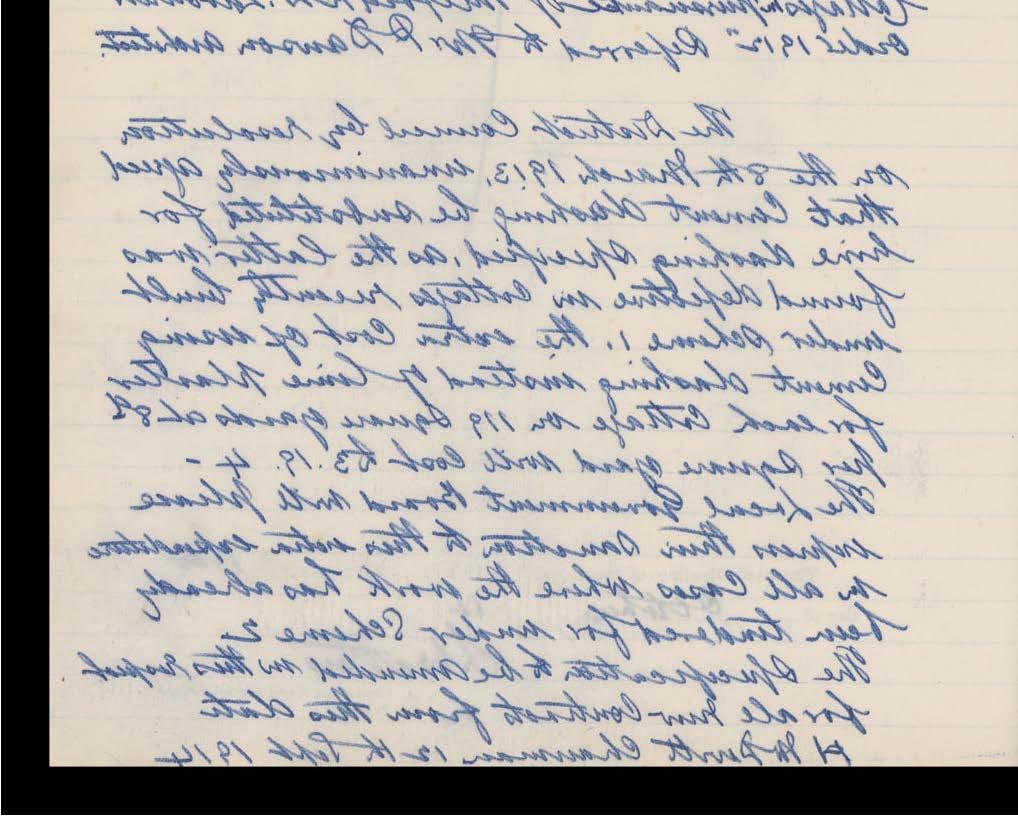 Order 1912" Referred to Mr R Dawson Architect.
The District Council by resolution
on the 8th March 1913, unanimously agreed
that Cement dashing be substituted for
lime dashing specified, as the latter was
found defective in Cottages recently built
under Scheme 1. the extra Cost of using
Cement dashing instead of lime plaster
for each Cottage on 119 Square yards at 8d
per Square yard will Cost £3. 19. 4 -
The Local Government Board will please
express their Sanction to this extra expenditure
in all Cases where the work has already
been tendered for under Scheme 2
The Specification to be amended in this respect
for all new Contracts from this date
Chairman 12th Sept 1914